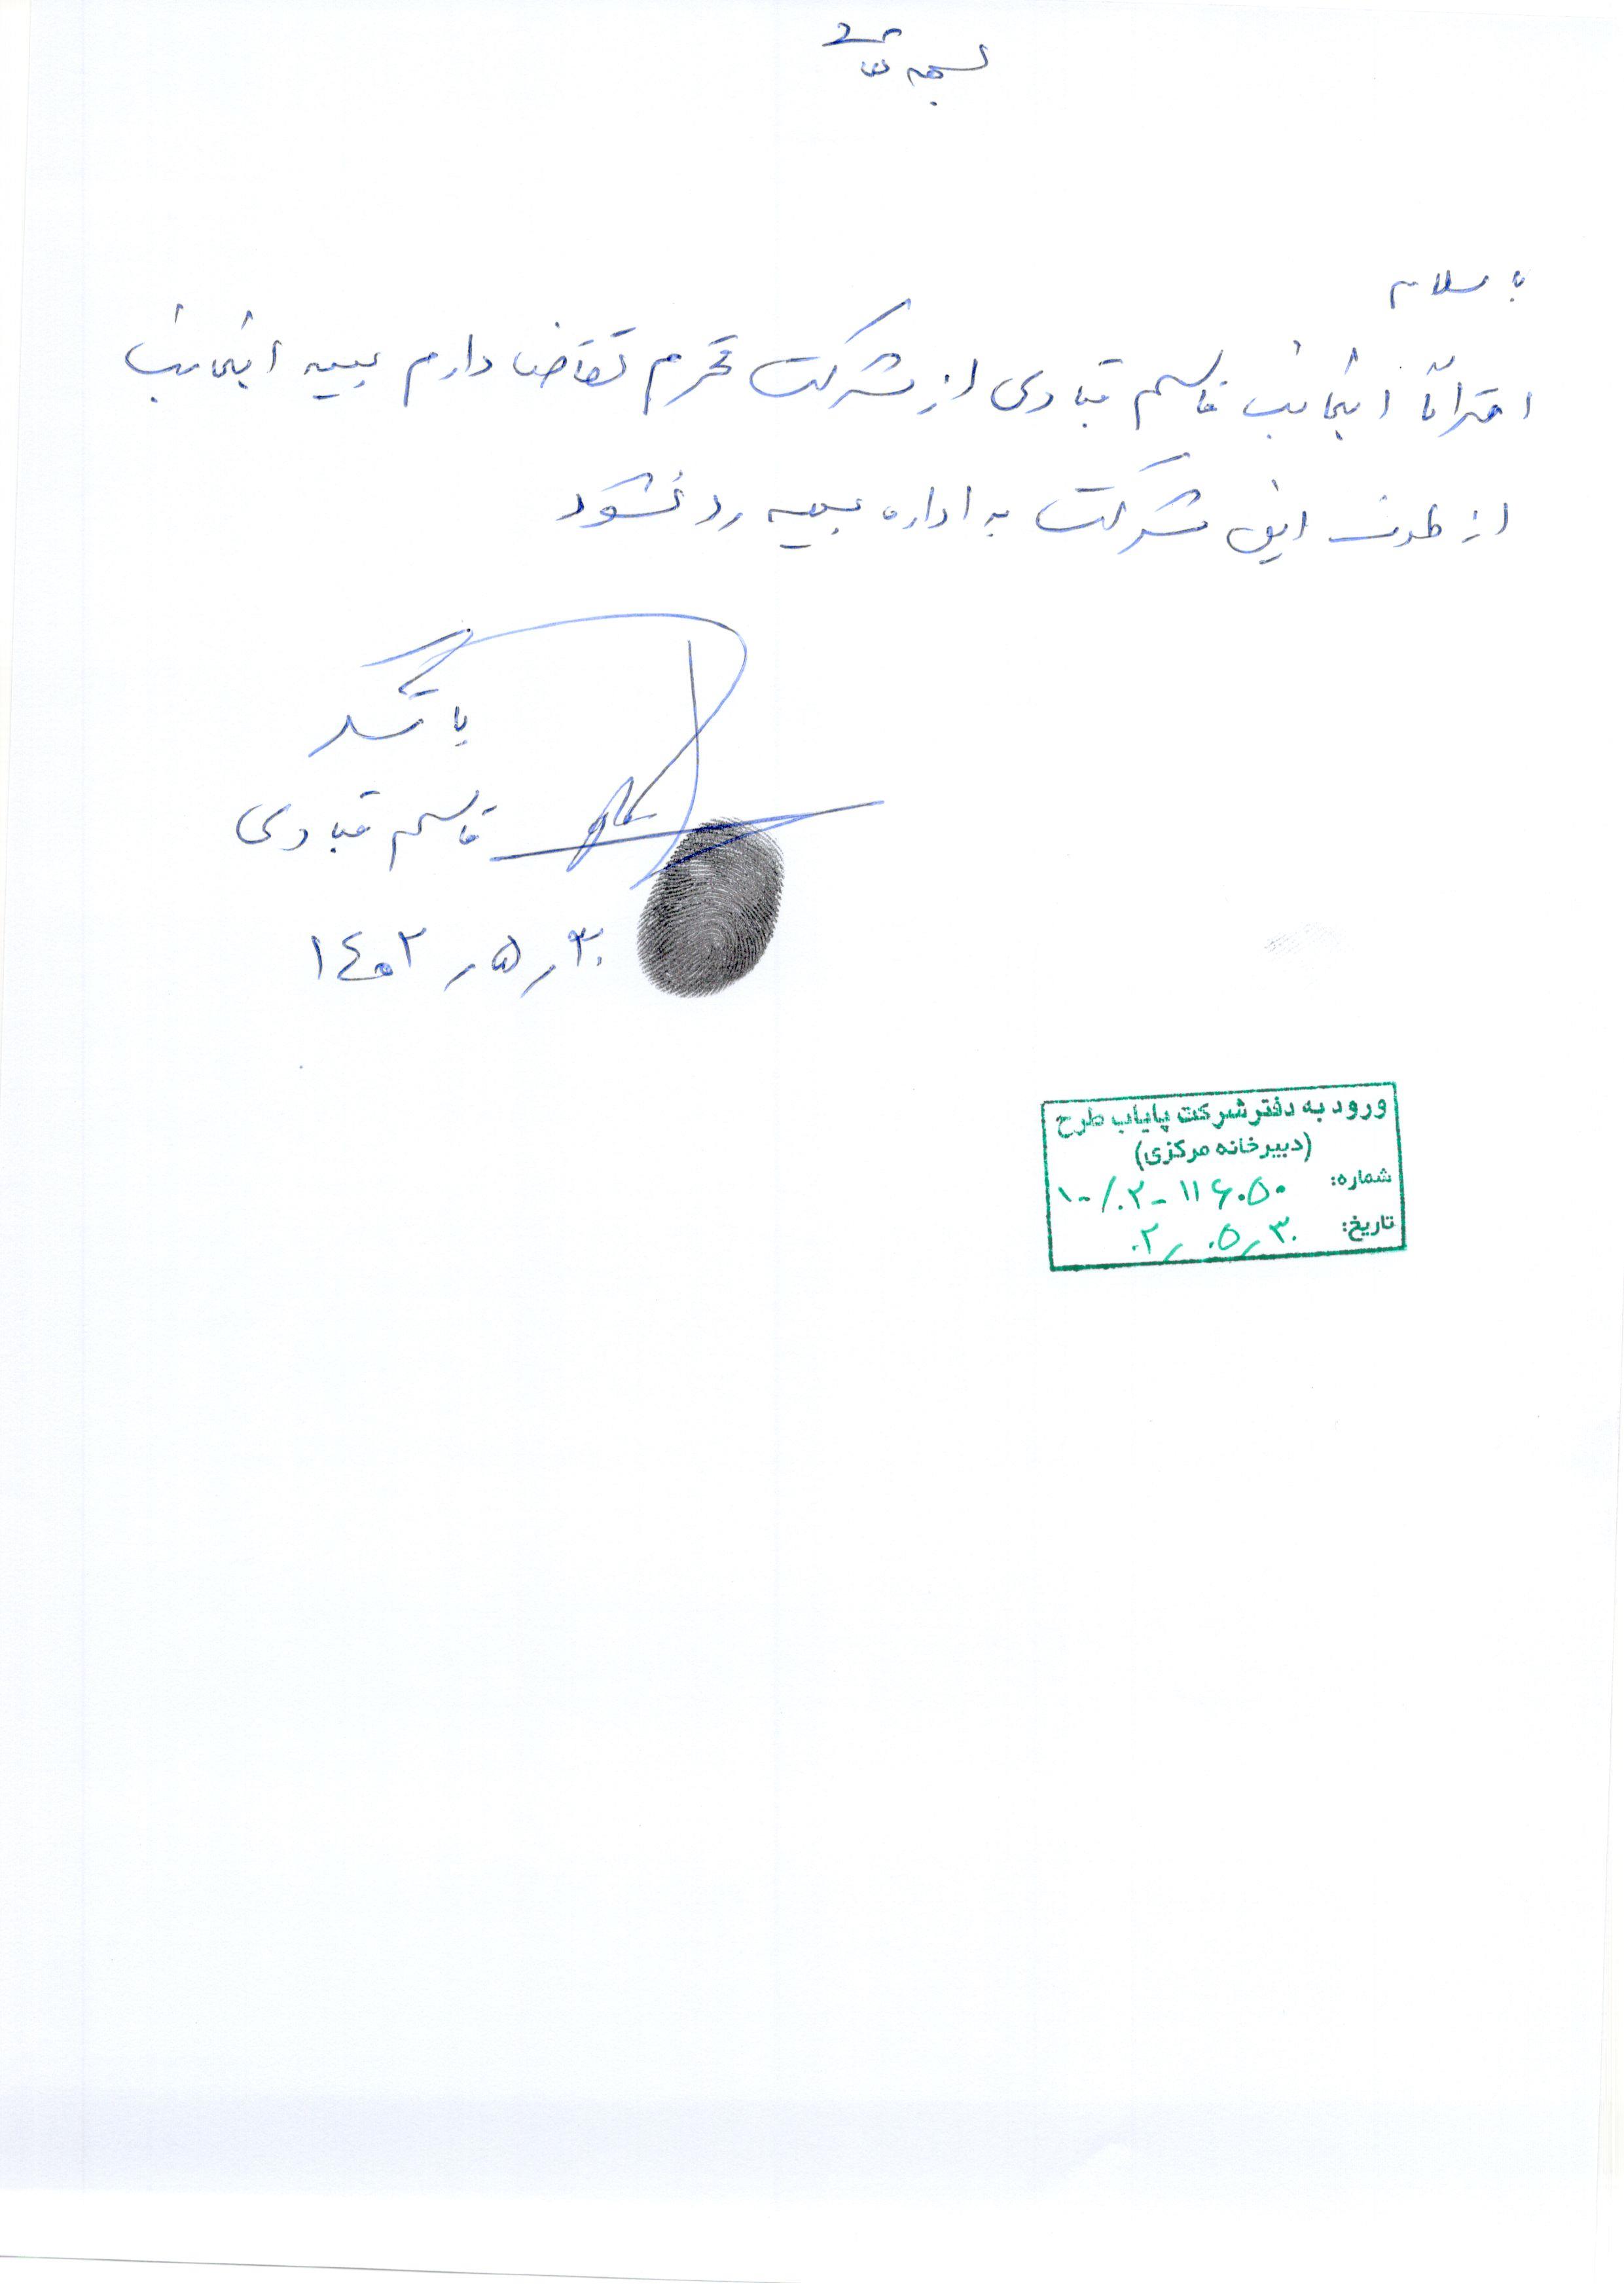 بسمه تعالی
با سلام
احتراماً اینجانب قاسم قبادی از شرکت محترم تقاضا دارم بیمه اینجانب
از طرف این شرکت به اداره بیمه رد نشود
با تشکر
قاسم قبادی
۱۴۰۲٫۵٫۳۰
ورود به دفتر شرکت پایاب طرح
(دبیرخانه مرکزی)
شماره: ۱۰/۰۲-۱۱۶۰۵۰
تاریخ: ۰۲٫۰۵٫۳۰